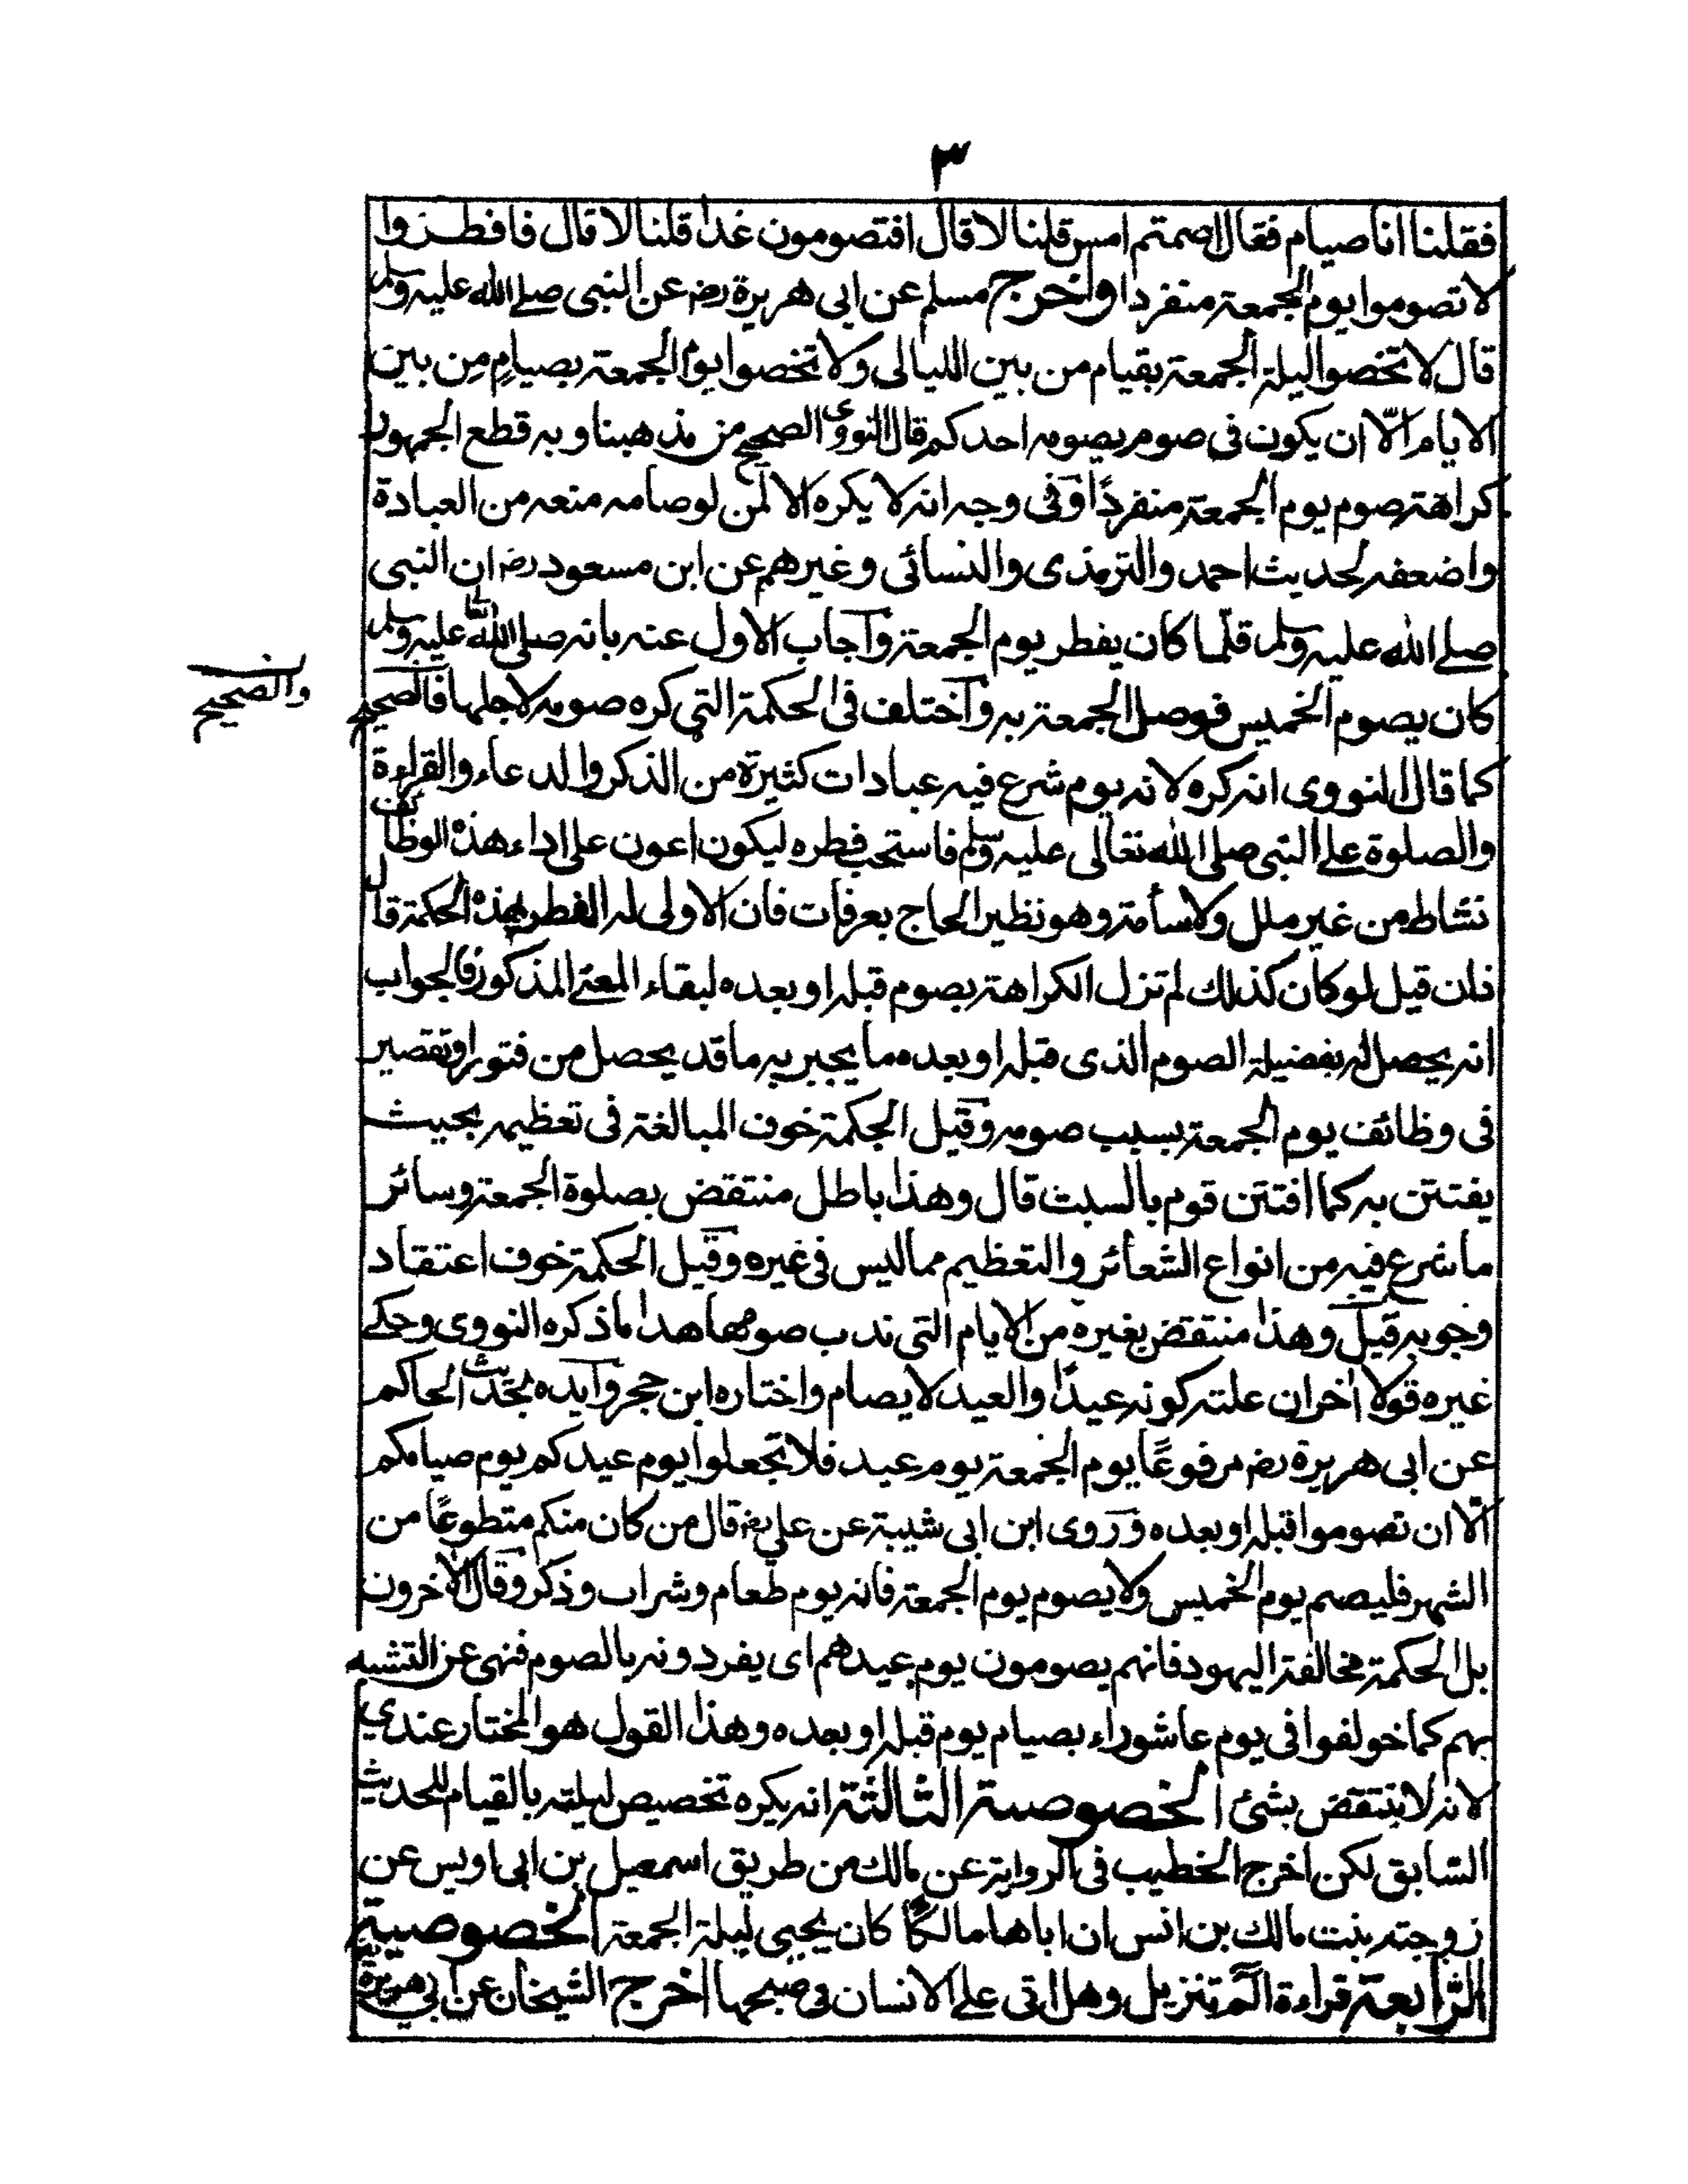 ٣
فقلنا انا صيام فقال اصمتم امس قلنا لا قال افتصومون غدا قلنا لا قال فافطروا
لا تصوموا يوم الجمعة منفردا واخرج مسلم عن ابى هريرة رضـ عن النبى صلى الله عليه وسلم
قال لا تخصوا ليلة الجمعة بقيام من بين الليالى ولا تخصوا يوم الجمعة بصيامٍ مِن بين
الايام الّا ان يكون فى صوم يصومه احدكم قال النووى الصحيح من مذهبنا وبه قطع الجمهور
كراهة صوم يوم الجمعة منفردًا وفى وجه انه لا يكره الا لمن لو صامه منعه من العبادة
واضعفه لحديث احمد والترمذى والنسائى وغيرهم عن ابن مسعود رضـ ان النبى
صلى الله عليه وسلم قلّما كان يفطر يوم الجمعة واجاب الاول عنه بانه صلى الله تعالى عليه وسلم
كان يصوم الخميس فوصل الجمعة به واختلف فى الحكمة التي كره صومه لاجلها فالصحيح
والصحيح
كما قال النووى انه كره لانه يوم شرع فيه عبادات كثيرة من الذكر والدعاء والقراءة
والصلوة على النبى صلى الله تعالى عليه وسلم فاستحب فطره ليكون اعون على اداء هذه الوظائف
نشاط من غير ملل ولا سأمة وهو نظير الحاج بعرفات فان الاولى له الفطر بهذه الحكمة قال
فلن قيل لو كان كذلك لم تزل الكراهة بصوم قبله او بعده لبقاء المعنى المذكور فالجواب
انه يحصل له بفضيلة الصوم الذى قبله او بعده ما يجبر به ما قد يحصل من فتور او تقصير
فى وظائف يوم الجمعة بسبب صومه وقيل الحكمة خوف المبالغة فى تعظيمه بحيث
يفتتن به كما افتتن قوم بالسبت قال وهذا باطل منتقض بصلوة الجمعة وسائر
ما شرع فيه من انواع الشعائر والتعظيم مما ليس فى غيره وقيل الحكمة خوف اعتقاد
وجوبه قيل وهذا منتقض بغيره من الايام التى ندب صومها هذا ما ذكره النووى وحكى
غيره قولا اخر ان علته كونه عيدًا والعيد لا يصام واختاره ابن حجر وايده بحديث الحاكم
عن ابى هريرة رضـ مرفوعًا يوم الجمعة يوم عيد فلا تجعلوا يوم عيدكم يوم صيامكم
الّا ان تصوموا قبله او بعده وروى ابن ابى شيبة عن علي رضـ قال من كان منكم متطوعًا من
الشهر فليصم يوم الخميس ولا يصوم يوم الجمعة فانه يوم طعام وشراب وذكر وقال الاخرون
بل الحكمة مخالفة اليهود فانهم يصومون يوم عيدهم اى يفردونه بالصوم فنهى عن التشبه
بهم كما خولفوا فى يوم عاشوراء بصيام يوم قبله او بعده وهذا القول هو المختار عندي
لانه لا ينتقض بشئ الخصوصية الثالثة انه يكره تخصيص ليلته بالقيام للحديث
السابق لكن اخرج الخطيب فى الرواية عن مالك من طريق اسمعيل بن ابى اويس عن
زوجته بنت مالك بن انس ان اباها مالكًا كان يحيى ليلة الجمعة الخصوصية
الرابعة قراءة الٓمٓ تنزيل وهل اتى على الانسان فى صبحها اخرج الشيخان عن ابي هريرة